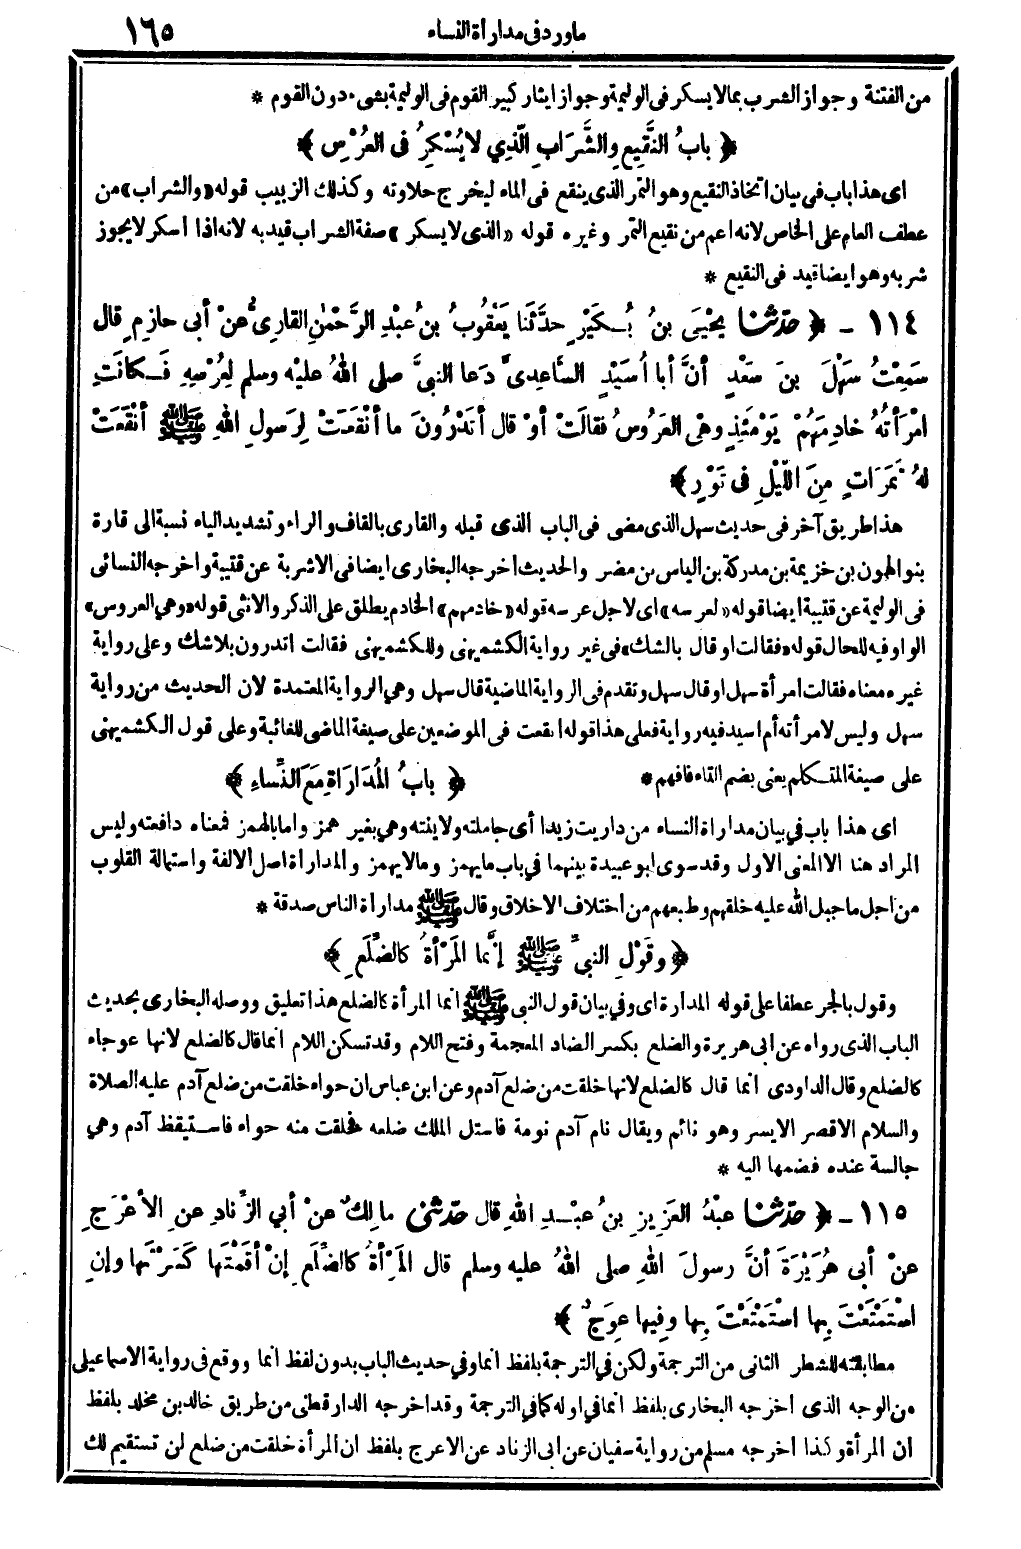 ماورد فى مدارأة النساء ١٦٥
من الفتنة وجواز الشرب بمالا يسكر فى الوليمة وجواز ايثار كبير القوم فى الوليمة بشىء دون القوم *
﴿ بابُ النَّقِيعِ والشَّرَابِ الَّذِي لا يُسْكِرُ فى العُرْسِ ﴾
اى هذا باب فى بيان اتخاذ النقيع وهو التمر الذى ينقع فى الماء ليخرج حلاوته وكذلك الزبيب قوله «والشراب» من
عطف العام على الخاص لانه اعم من نقيع التمر وغيره قوله «الذى لا يسكر» صفة الشراب قيد به لانه اذا اسكر لا يجوز
شربه وهو ايضا قيد فى النقيع *
١١٤ - ﴿ حدّثنا يَحْيَى بنُ بُكَيْرٍ حدَّثَنا يَعْقُوبُ بنُ عبْدِ الرَّحْمٰنِ القارِىُّ عنْ أبى حازِمٍ قال
سَمِعْتُ سَهْلَ بنَ سَعْدٍ أنَّ أبا أُسَيْدٍ السَّاعِدِىَّ دَعا النبىَّ صلى اللهُ عليْه وسلم لِعُرْسِهِ فَكانَتِ
امْرَأتُهُ خادِمَهُمْ يَوْمَئِذٍ وهْىَ العَرُوسُ فقالَتْ أوْ قال أتَدْرُونَ ما أنْقَعَتْ لِرَسولِ اللهِ ﷺ أنْقَعَتْ
لهُ تَمَرَاتٍ مِنَ اللَّيْلِ فى تَوْرٍ ﴾
هذا طريق آخر فى حديث سهل الذى مضى فى الباب الذى قبله والقارى بالقاف والراء وتشديد الياء نسبة الى قارة
بنو الهون بن خزيمة بن مدركة بن الياس بن مضر والحديث اخرجه البخارى ايضا فى الاشربة عن قتيبة واخرجه النسائى
فى الوليمة عن قتيبة ايضا قوله «لعرسه» اى لاجل عرسه قوله «خادمهم» الخادم يطلق على الذكر والانثى قوله «وهي العروس»
الواو فيه للحال قوله «فقالت او قال بالشك» فى غير رواية الكشميهنى وللكشميهنى فقالت اتدرون بلا شك وعلى رواية
غيره معناه فقالت امرأة سهل او قال سهل وتقدم فى الرواية الماضية قال سهل وهي الرواية المعتمدة لان الحديث من رواية
سهل وليس لامرأته أم اسيد فيه رواية فعلى هذا قوله انقعت فى الموضعين على صيغة الماضى للغائبة وعلى قول الكشميهنى
على صيغة المتكلم يعنى بضم التاء فافهم * ﴿ بابُ المُدَارَاةِ مَعَ النِّساءِ ﴾
اى هذا باب في بيان مداراة النساء من داريت زيدا أى جاملته ولاينته وهي بغير همز واما بالهمز فمعناه دافعته وليس
المراد هنا الا المعنى الاول وقد سوى ابو عبيدة بينهما في باب مايهمز ومالايهمز والمداراة اصل الالفة واستمالة القلوب
من اجل ماجبل الله عليه خلقهم وطبعهم من اختلاف الاخلاق وقال ﷺ مدارأة الناس صدقة *
﴿ وقَوْلِ النبىِّ ﷺ إنَّما المَرْأةُ كالضِّلَعِ ﴾
وقول بالجر عطفا على قوله المدارة اى وفي بيان قول النبى ﷺ انما المرأة كالضلع هذا تعليق ووصله البخارى بحديث
الباب الذى رواه عن ابى هريرة والضلع بكسر الضاد المعجمة وفتح اللام وقد تسكن اللام انما قال كالضلع لانها عوجاء
كالضلع وقال الداودى انما قال كالضلع لانها خلقت من ضلع آدم وعن ابن عباس ان حواء خلقت من ضلع آدم عليه الصلاة
والسلام الاقصر الايسر وهو نائم ويقال نام آدم نومة فاستل الملك ضلعه فخلقت منه حواء فاستيقظ آدم وهي
جالسة عنده فضمها اليه *
١١٥ - ﴿ حدّثنا عبْدُ العَزِيزِ بنُ عبْدِ اللهِ قال حدّثنى مالِكٌ عنْ أبي الزِّنادِ عنِ الأعْرَجِ
عنْ أبى هُرَيْرَةَ أنَّ رسولَ اللهِ صلى اللهُ عليه وسلم قال المَرْأةُ كالضِّلَعِ إنْ أقَمْتَها كَسَرْتَها وإنِ
اسْتَمْتَعْتَ بِها اسْتَمْتَعْتَ بِها وفِيها عِوَجٌ ﴾
مطابقته للشطر الثانى من الترجمة ولكن في الترجمة بلفظ انما وفي حديث الباب بدون لفظ انما ووقع فى رواية الاسماعيلى
من الوجه الذى اخرجه البخارى بلفظ انما في اوله كما في الترجمة وقد اخرجه الدارقطنى من طريق خالد بن مخلد بلفظ
ان المرأة وكذا اخرجه مسلم من رواية سفيان عن ابى الزناد عن الاعرج بلفظ ان المرأة خلقت من ضلع لن تستقيم لك